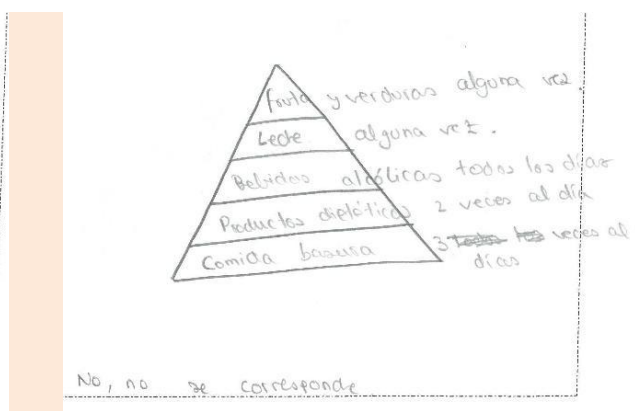 fruta y verduras alguna vez.
Leche alguna vez.
Bebidas alcólicas todos los días
Productos dieléticos 2 veces al día
Comida basura 3 veces al
días
No, no se corresponde